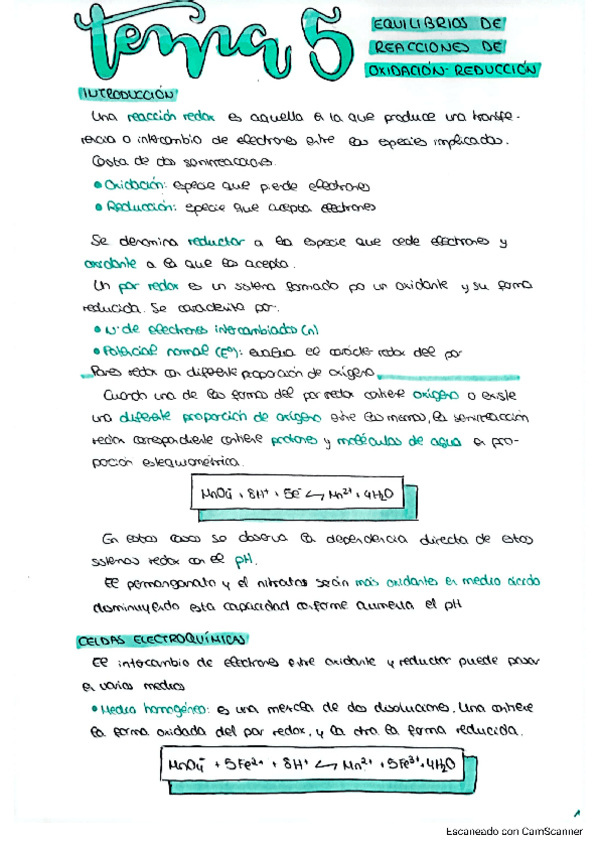 tema 5
EQUILIBRIOS DE
REACCIONES DE
OXIDACIÓN-REDUCCIÓN
INTRODUCCIÓN
Una reacción redox es aquella en la que produce una transfe-
rencia o intercambio de electrones entre las especies implicadas.
Consta de dos semirreacciones.
• Oxidación: especie que pierde electrones
• Reducción: especie que acepta electrones
Se denomina reductor a la especie que cede electrones y
oxidante a la que los acepta.
Un par redox es un sistema formado por un oxidante y su forma
reducida. Se caracteriza por:
• Nº de electrones intercambiados (n)
• Potencial normal (Eº): evalúa el carácter redox del par
Pares redox con diferente proporción de oxígeno
Cuando una de las formas del par redox contiene oxígeno o existe
una diferente proporción de oxígeno entre las mismas, la semirreacción
redox correspondiente contiene protones y moléculas de agua en pro-
porción estequiométrica.
MnO₄⁻ + 8H⁺ + 5e⁻ ↔ Mn²⁺ + 4H₂O
En estos casos se observa la dependencia directa de estos
sistemas redox con el pH.
El permanganato y el nitrato serán más oxidantes en medio ácido
disminuyendo esta capacidad conforme aumenta el pH
CELDAS ELECTROQUÍMICAS
El intercambio de electrones entre oxidante y reductor puede pasar
en varios medios
• Medio homogéneo: es una mezcla de dos disoluciones. Una contiene
la forma oxidada del par redox, y la otra la forma reducida.
MnO₄⁻ + 5Fe²⁺ + 8H⁺ ↔ Mn²⁺ + 5Fe³⁺ + 4H₂O
Escaneado con CamScanner